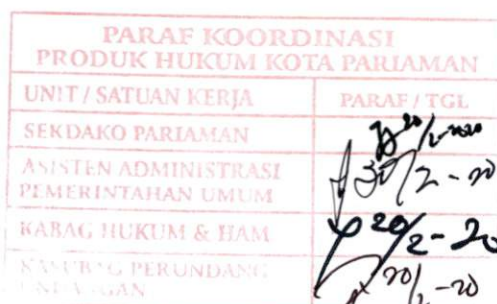 PARAF KOORDINASI
PRODUK HUKUM KOTA PARIAMAN
UNIT / SATUAN KERJA PARAF / TGL
SEKDAKO PARIAMAN 20/2-2020
ASISTEN ADMINISTRASI
PEMERINTAHAN UMUM /2-20
KABAG HUKUM & HAM 20/2-20
KASUBAG PERUNDANG
UNDANGAN 20/2-20